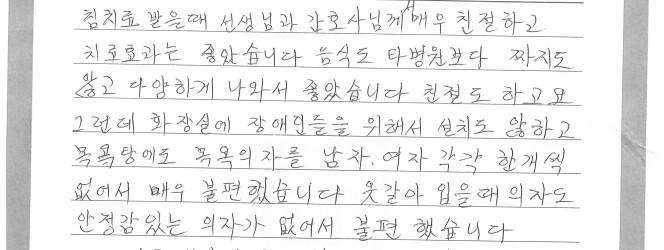 침치료 받을때 선생님과 간호사님께서 매우 친절하고
치료효과는 좋았습니다 음식도 타병원보다 짜지도
않고 다양하게 나와서 좋았습니다 친절도 하고요
그런데 화장실에 장애인들을 위해서 설치도 않하고
목욕탕에도 목욕의자를 남자.여자 각각 한개씩
없어서 매우 불편했습니다 옷갈아 입을때 의자도
안정감있는 의자가 없어서 불편 했습니다